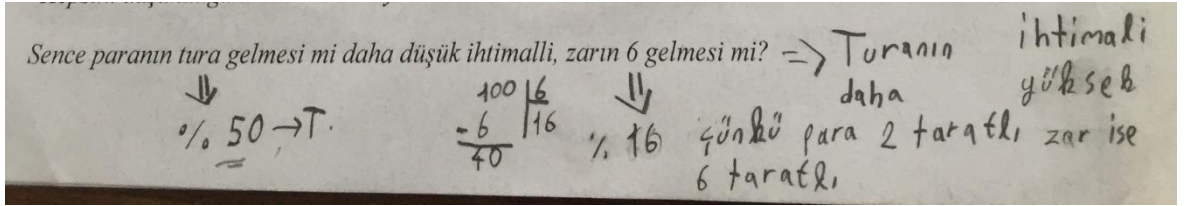 Sence paranın tura gelmesi mi daha düşük ihtimalli, zarın 6 gelmesi mi? => Turanın ihtimali
daha yüksek
% 50 → T.
100 6
- 6 16
40
% 16 çünkü para 2 taraflı zar ise
6 taraflı